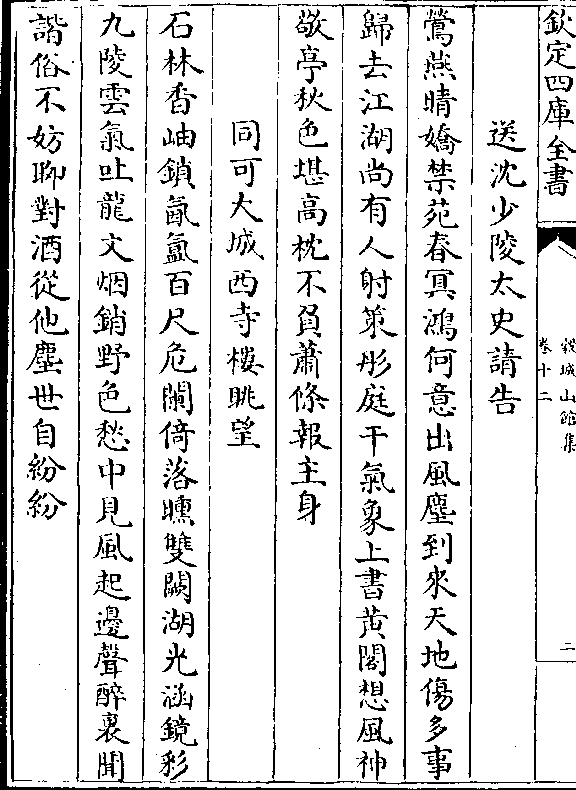 欽定四庫全書
穀城山館集
卷十二
二
送沈少陵太史請告
鶯燕晴嬌禁苑春冥鴻何意出風塵到來天地傷多事
歸去江湖尚有人射策彤庭干氣象上書黃閣想風神
敬亭秋色堪高枕不負蕭條報主身
同可大城西寺樓眺望
石林杳岫鎖氤氳百尺危闌倚落曛雙闕湖光涵鏡彩
九陵雲氣吐龍文烟銷野色愁中見風起邊聲醉裏聞
諧俗不妨聊對酒從他塵世自紛紛